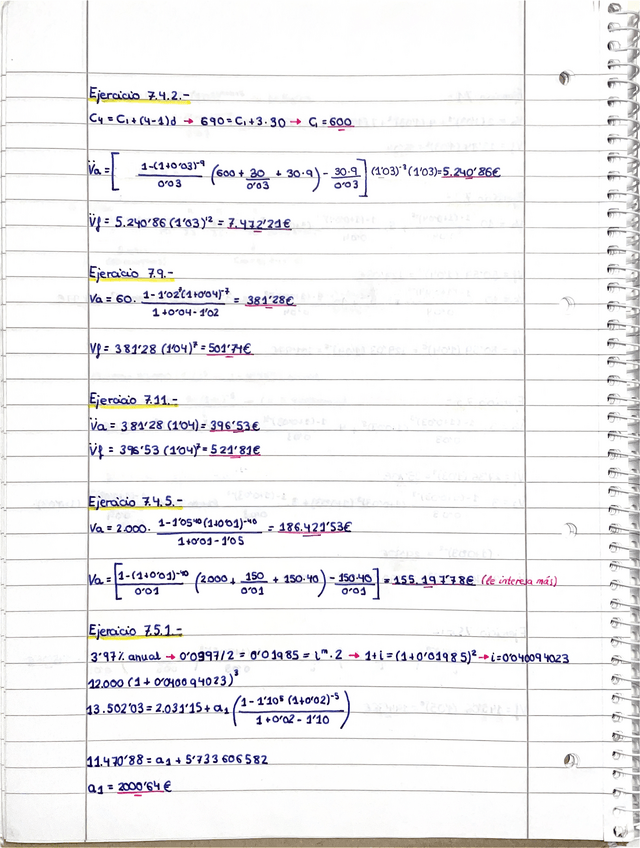 Ejercicio 7.4.2.-
C4 = C1 + (4-1)d → 690 = C1 + 3·30 → C1 = 600
V̈a = [ 1-(1+0'03)⁻⁹ / 0'03 (600 + 30 / 0'03 + 30·9) - 30·9 / 0'03 ] (1'03)⁻³ (1'03) = 5.240'86€
V̈f = 5.240'86 (1'03)¹² = 7.472'21€
Ejercicio 7.9.-
Va = 60 · 1-1'02⁷(1+0'04)⁻⁷ / 1+0'04-1'02 = 381'28€
Vf = 381'28 (1'04)⁷ = 501'74€
Ejercicio 7.11.-
V̈a = 381'28 (1'04) = 396'53€
V̈f = 396'53 (1'04)⁷ = 521'81€
Ejercicio 7.4.5.-
Va = 2.000 · 1-1'05⁴⁰ (1+0'01)⁻⁴⁰ / 1+0'01-1'05 = 186.421'53€
Va = [ 1-(1+0'01)⁻⁴⁰ / 0'01 (2000 + 150 / 0'01 + 150·40) - 150·40 / 0'01 ] = 155.197'78€ (le interesa más)
Ejercicio 7.5.1.-
3'97% anual → 0'0397/2 = 0'01985 = iᵐ·2 → 1+i = (1+0'01985)² → i=0'040094023
12.000 (1 + 0'040094023)³
13.502'03 = 2.031'15 + a1 ( 1-1'10⁵ (1+0'02)⁻⁵ / 1+0'02-1'10 )
11.470'88 = a1 + 5'733606582
a1 = 2000'64€